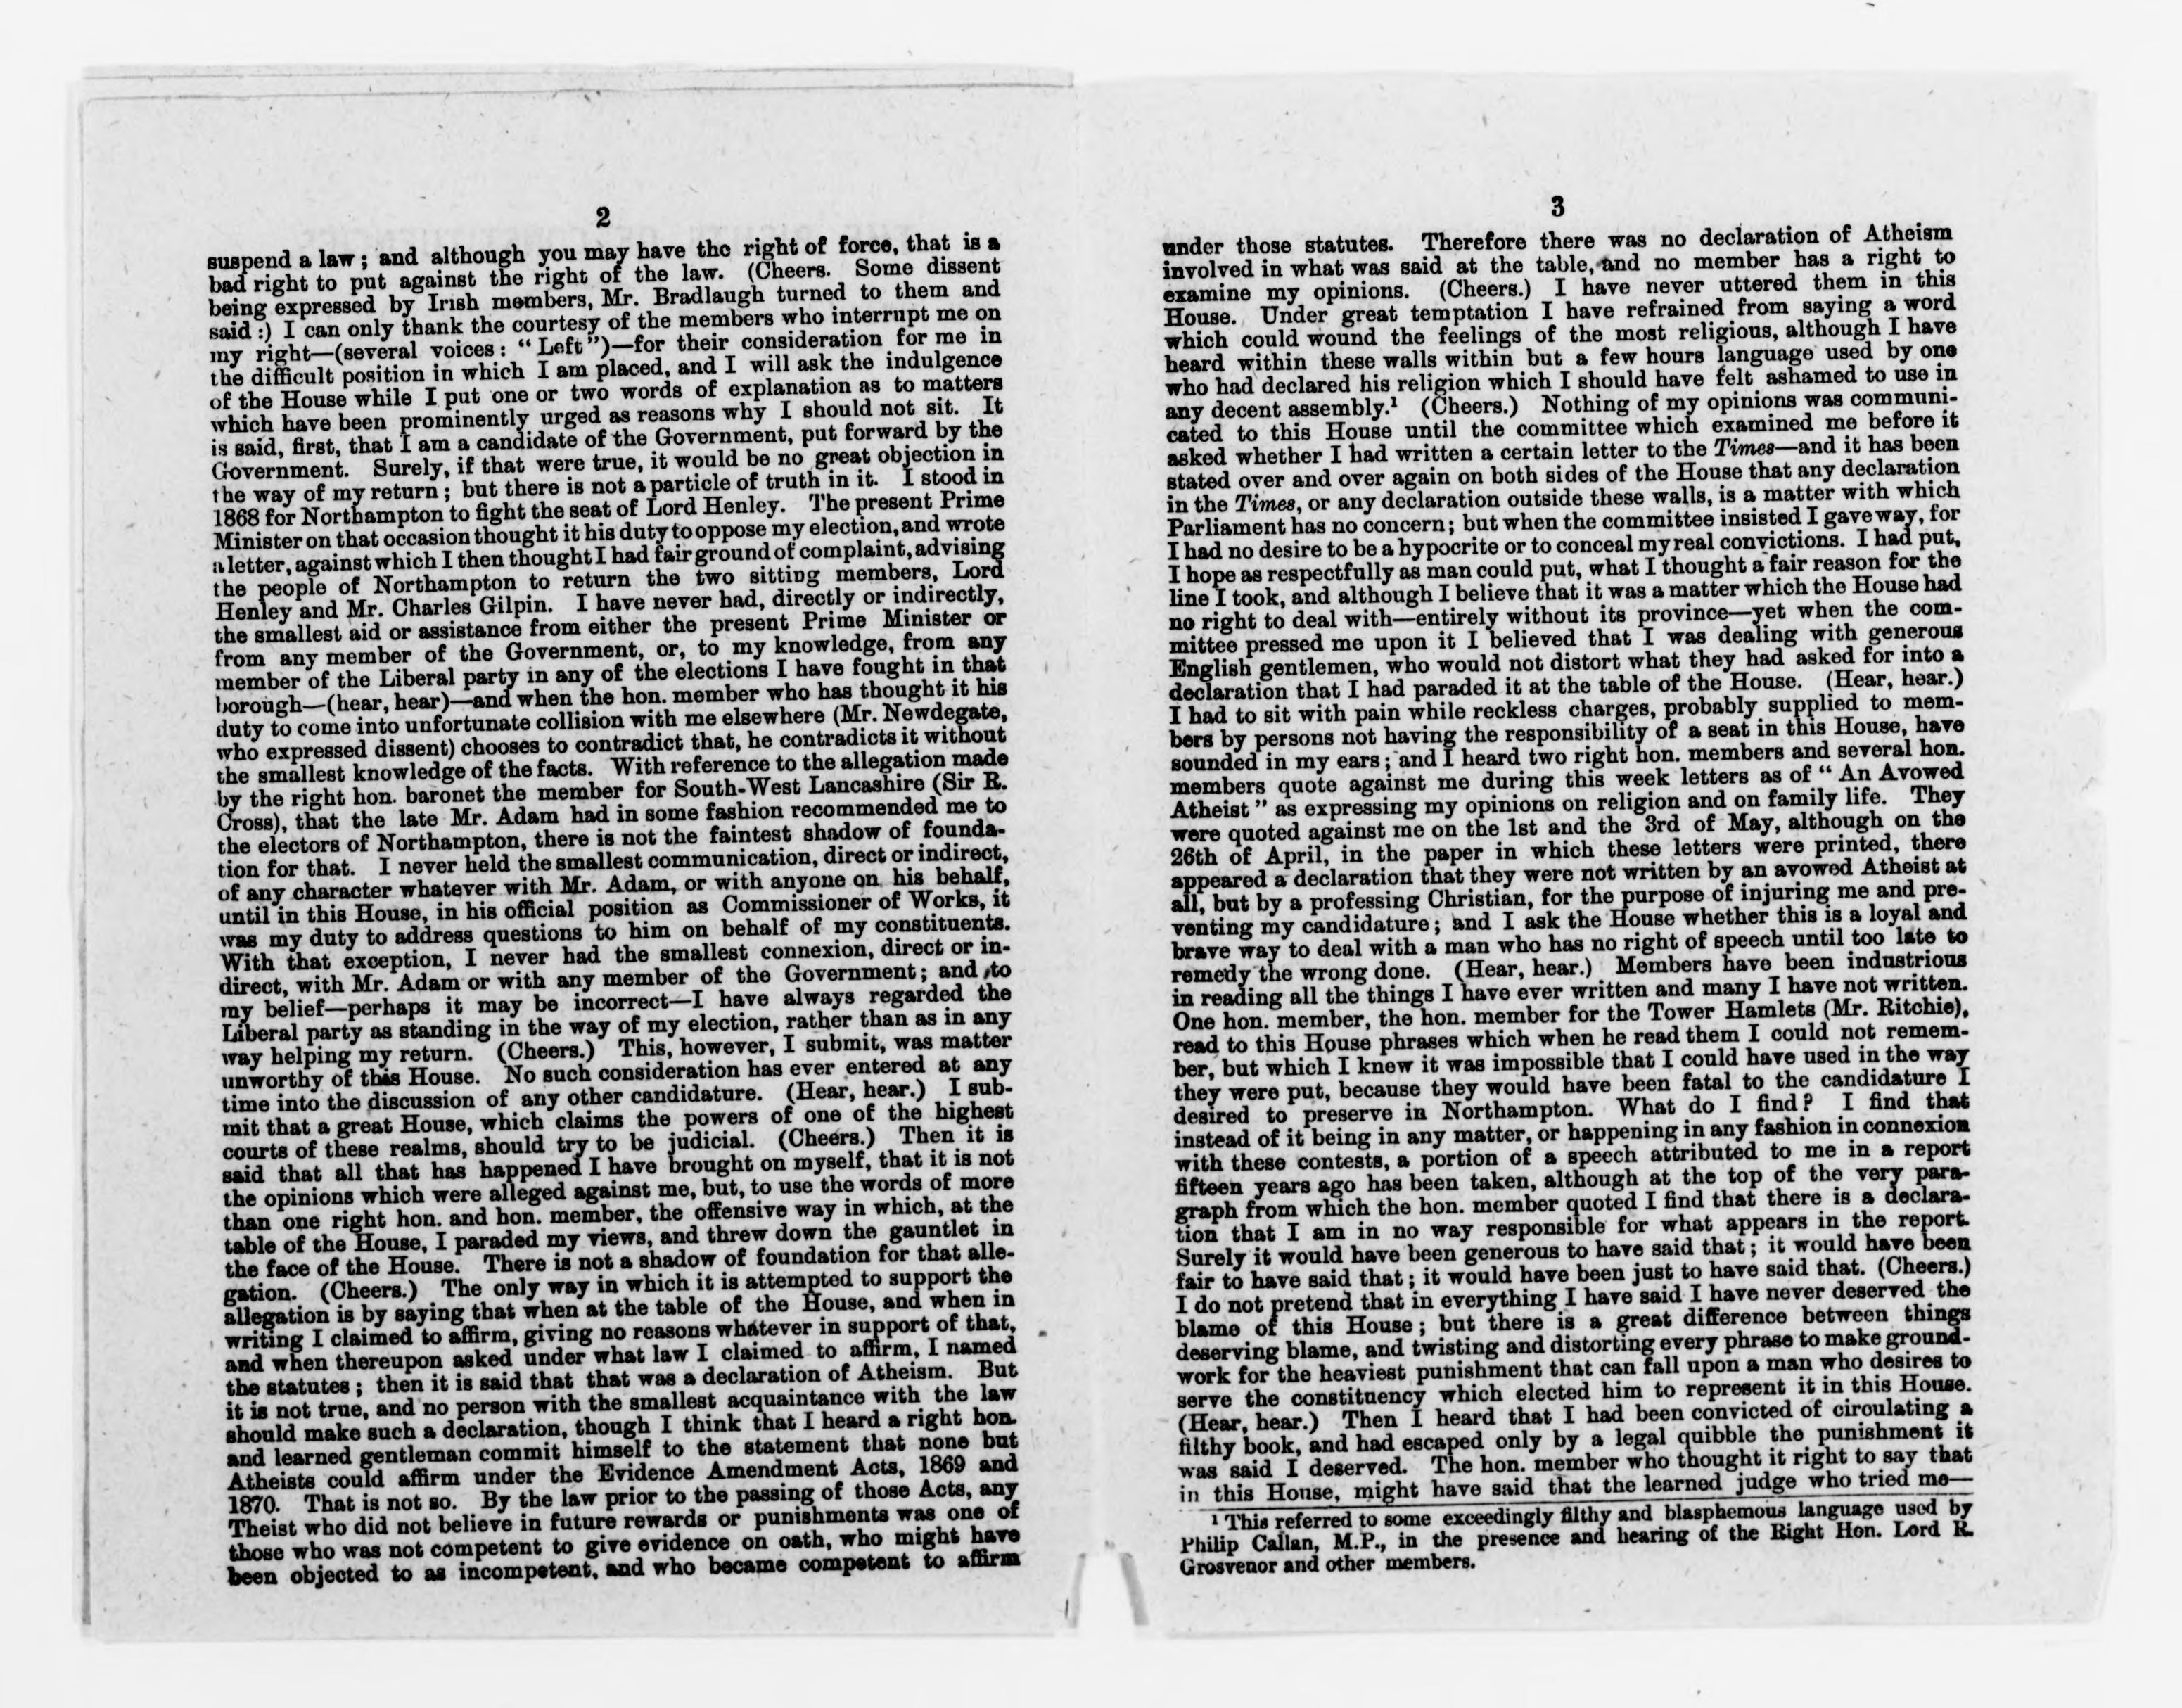 2
suspend a law ; and although you may have the right of force, that is a
bad right to put against the right of the law. (Cheers. Some dissent
being expressed by Irish members, Mr. Bradlaugh turned to them and
said :) I can only thank the courtesy of the members who interrupt me on
my right—(several voices : “ Left ”)—for their consideration for me in
the difficult position in which I am placed, and I will ask the indulgence
of the House while I put one or two words of explanation as to matters
which have been prominently urged as reasons why I should not sit. It
is said, first, that I am a candidate of the Government, put forward by the
Government. Surely, if that were true, it would be no great objection in
the way of my return ; but there is not a particle of truth in it. I stood in
1868 for Northampton to fight the seat of Lord Henley. The present Prime
Minister on that occasion thought it his duty to oppose my election, and wrote
a letter, against which I then thought I had fair ground of complaint, advising
the people of Northampton to return the two sitting members, Lord
Henley and Mr. Charles Gilpin. I have never had, directly or indirectly,
the smallest aid or assistance from either the present Prime Minister or
from any member of the Government, or, to my knowledge, from any
member of the Liberal party in any of the elections I have fought in that
borough—(hear, hear)—and when the hon. member who has thought it his
duty to come into unfortunate collision with me elsewhere (Mr. Newdegate,
who expressed dissent) chooses to contradict that, he contradicts it without
the smallest knowledge of the facts. With reference to the allegation made
by the right hon. baronet the member for South-West Lancashire (Sir R.
Cross), that the late Mr. Adam had in some fashion recommended me to
the electors of Northampton, there is not the faintest shadow of founda-
tion for that. I never held the smallest communication, direct or indirect,
of any character whatever with Mr. Adam, or with anyone on his behalf,
until in this House, in his official position as Commissioner of Works, it
was my duty to address questions to him on behalf of my constituents.
With that exception, I never had the smallest connexion, direct or in-
direct, with Mr. Adam or with any member of the Government ; and to
my belief—perhaps it may be incorrect—I have always regarded the
Liberal party as standing in the way of my election, rather than as in any
way helping my return. (Cheers.) This, however, I submit, was matter
unworthy of this House. No such consideration has ever entered at any
time into the discussion of any other candidature. (Hear, hear.) I sub-
mit that a great House, which claims the powers of one of the highest
courts of these realms, should try to be judicial. (Cheers.) Then it is
said that all that has happened I have brought on myself, that it is not
the opinions which were alleged against me, but, to use the words of more
than one right hon. and hon. member, the offensive way in which, at the
table of the House, I paraded my views, and threw down the gauntlet in
the face of the House. There is not a shadow of foundation for that alle-
gation. (Cheers.) The only way in which it is attempted to support the
allegation is by saying that when at the table of the House, and when in
writing I claimed to affirm, giving no reasons whatever in support of that,
and when thereupon asked under what law I claimed to affirm, I named
the statutes ; then it is said that that was a declaration of Atheism. But
it is not true, and no person with the smallest acquaintance with the law
should make such a declaration, though I think that I heard a right hon.
and learned gentleman commit himself to the statement that none but
Atheists could affirm under the Evidence Amendment Acts, 1869 and
1870. That is not so. By the law prior to the passing of those Acts, any
Theist who did not believe in future rewards or punishments was one of
those who was not competent to give evidence on oath, who might have
been objected to as incompetent, and who became competent to affirm
3
under those statutes. Therefore there was no declaration of Atheism
involved in what was said at the table, and no member has a right to
examine my opinions. (Cheers.) I have never uttered them in this
House. Under great temptation I have refrained from saying a word
which could wound the feelings of the most religious, although I have
heard within these walls within but a few hours language used by one
who had declared his religion which I should have felt ashamed to use in
any decent assembly.¹ (Cheers.) Nothing of my opinions was communi-
cated to this House until the committee which examined me before it
asked whether I had written a certain letter to the Times—and it has been
stated over and over again on both sides of the House that any declaration
in the Times, or any declaration outside these walls, is a matter with which
Parliament has no concern ; but when the committee insisted I gave way, for
I had no desire to be a hypocrite or to conceal my real convictions. I had put,
I hope as respectfully as man could put, what I thought a fair reason for the
line I took, and although I believe that it was a matter which the House had
no right to deal with—entirely without its province—yet when the com-
mittee pressed me upon it I believed that I was dealing with generous
English gentlemen, who would not distort what they had asked for into a
declaration that I had paraded it at the table of the House. (Hear, hear.)
I had to sit with pain while reckless charges, probably supplied to mem-
bers by persons not having the responsibility of a seat in this House, have
sounded in my ears ; and I heard two right hon. members and several hon.
members quote against me during this week letters as of “ An Avowed
Atheist ” as expressing my opinions on religion and on family life. They
were quoted against me on the 1st and the 3rd of May, although on the
26th of April, in the paper in which these letters were printed, there
appeared a declaration that they were not written by an avowed Atheist at
all, but by a professing Christian, for the purpose of injuring me and pre-
venting my candidature ; and I ask the House whether this is a loyal and
brave way to deal with a man who has no right of speech until too late to
remedy the wrong done. (Hear, hear.) Members have been industrious
in reading all the things I have ever written and many I have not written.
One hon. member, the hon. member for the Tower Hamlets (Mr. Ritchie),
read to this House phrases which when he read them I could not remem-
ber, but which I knew it was impossible that I could have used in the way
they were put, because they would have been fatal to the candidature I
desired to preserve in Northampton. What do I find? I find that
instead of it being in any matter, or happening in any fashion in connexion
with these contests, a portion of a speech attributed to me in a report
fifteen years ago has been taken, although at the top of the very para-
graph from which the hon. member quoted I find that there is a declara-
tion that I am in no way responsible for what appears in the report.
Surely it would have been generous to have said that ; it would have been
fair to have said that ; it would have been just to have said that. (Cheers.)
I do not pretend that in everything I have said I have never deserved the
blame of this House ; but there is a great difference between things
deserving blame, and twisting and distorting every phrase to make ground-
work for the heaviest punishment that can fall upon a man who desires to
serve the constituency which elected him to represent it in this House.
(Hear, hear.) Then I heard that I had been convicted of circulating a
filthy book, and had escaped only by a legal quibble the punishment it
was said I deserved. The hon. member who thought it right to say that
in this House, might have said that the learned judge who tried me—
¹ This referred to some exceedingly filthy and blasphemous language used by
Philip Callan, M.P., in the presence and hearing of the Right Hon. Lord R.
Grosvenor and other members.